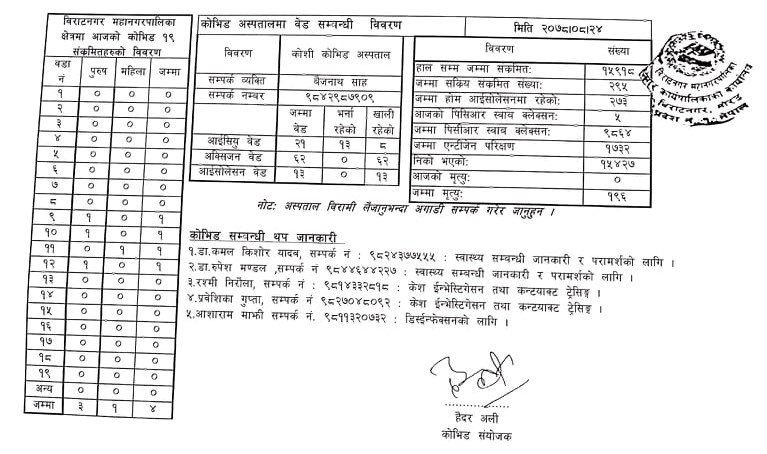 विराटनगर महानगरपालिका
क्षेत्रमा आजको कोभिड १९
संक्रमितहरुको विवरण
वडा नं पुरुष महिला जम्मा
१ ० ० ०
२ ० ० ०
३ ० ० ०
४ ० ० ०
५ ० ० ०
६ ० ० ०
७ ० ० ०
८ ० ० ०
९ १ ० १
१० १ ० १
११ ० १ १
१२ १ ० १
१३ ० ० ०
१४ ० ० ०
१५ ० ० ०
१६ ० ० ०
१७ ० ० ०
१८ ० ० ०
१९ ० ० ०
अन्य ० ० ०
जम्मा ३ १ ४
कोभिड अस्पतालमा वेड सम्वन्धी विवरण
मिति २०७८।०८।२४
विवरण कोशी कोभिड अस्पताल
सम्पर्क व्यक्ति बैजनाथ साह
सम्पर्क नम्बर ९८४२९८७९०९
जम्मा वेड भर्ना रहेको खाली रहेको
आईसियु वेड २१ १३ ८
अक्सिजन वेड ६२ ० ६२
आईसोलेसन वेड १३ ० १३
विवरण संख्या
हाल सम्म जम्मा संक्रमित: १५९१८
जम्मा सक्रिय संक्रमित संख्या: २९५
जम्मा होम आईसोलेसनमा रहेको: २७३
आजको पिसिआर स्वाव क्लेक्सन: ५
जम्मा पिसीआर स्वाव क्लेक्सन: ९८६४
जम्मा एन्टीजेन परिक्षण १७३२
निको भएको: १५४२७
आजको मृत्यु: ०
जम्मा मृत्यु: १९६
विराटनगर महानगरपालिका
नगर कार्यपालिकाको कार्यालय
विराटनगर, मोरङ
प्रदेश नं. १, नेपाल
नोट: अस्पताल विरामी लैजानुभन्दा अगाडी सम्पर्क गरेर जानुहुन ।
कोभिड सम्वन्धी थप जानकारी
१.डा.कमल किशोर यादव, सम्पर्क नं : ९८२४३७७५५५ : स्वास्थ्य सम्बन्धी जानकारी र परामर्शको लागि ।
२.डा.रुपेश मण्डल ,सम्पर्क नं ९८४४६४४२२७ : स्वास्थ्य सम्बन्धी जानकारी र परामर्शको लागि ।
३.रश्मी निरौला, सम्पर्क नं : ९८१४३३२८१८ : केश ईन्भेस्टिगेसन तथा कन्टयाक्ट ट्रेसिङ्ग ।
४.प्रवेशिका गुप्ता, सम्पर्क नं ९८२७०४८०९२ : केश ईन्भेस्टिगेसन तथा कन्टयाक्ट ट्रेसिङ्ग ।
५.आशाराम माझी सम्पर्क नं. ९८११३२०७३२ : डिस्ईन्फेक्सनको लागि ।
हैदर अली
कोभिड संयोजक